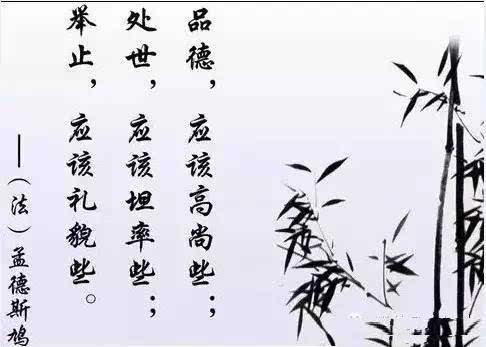 品德，应该高尚些；
处世，应该坦率些；
举止，应该礼貌些。
—（法）孟德斯鸠